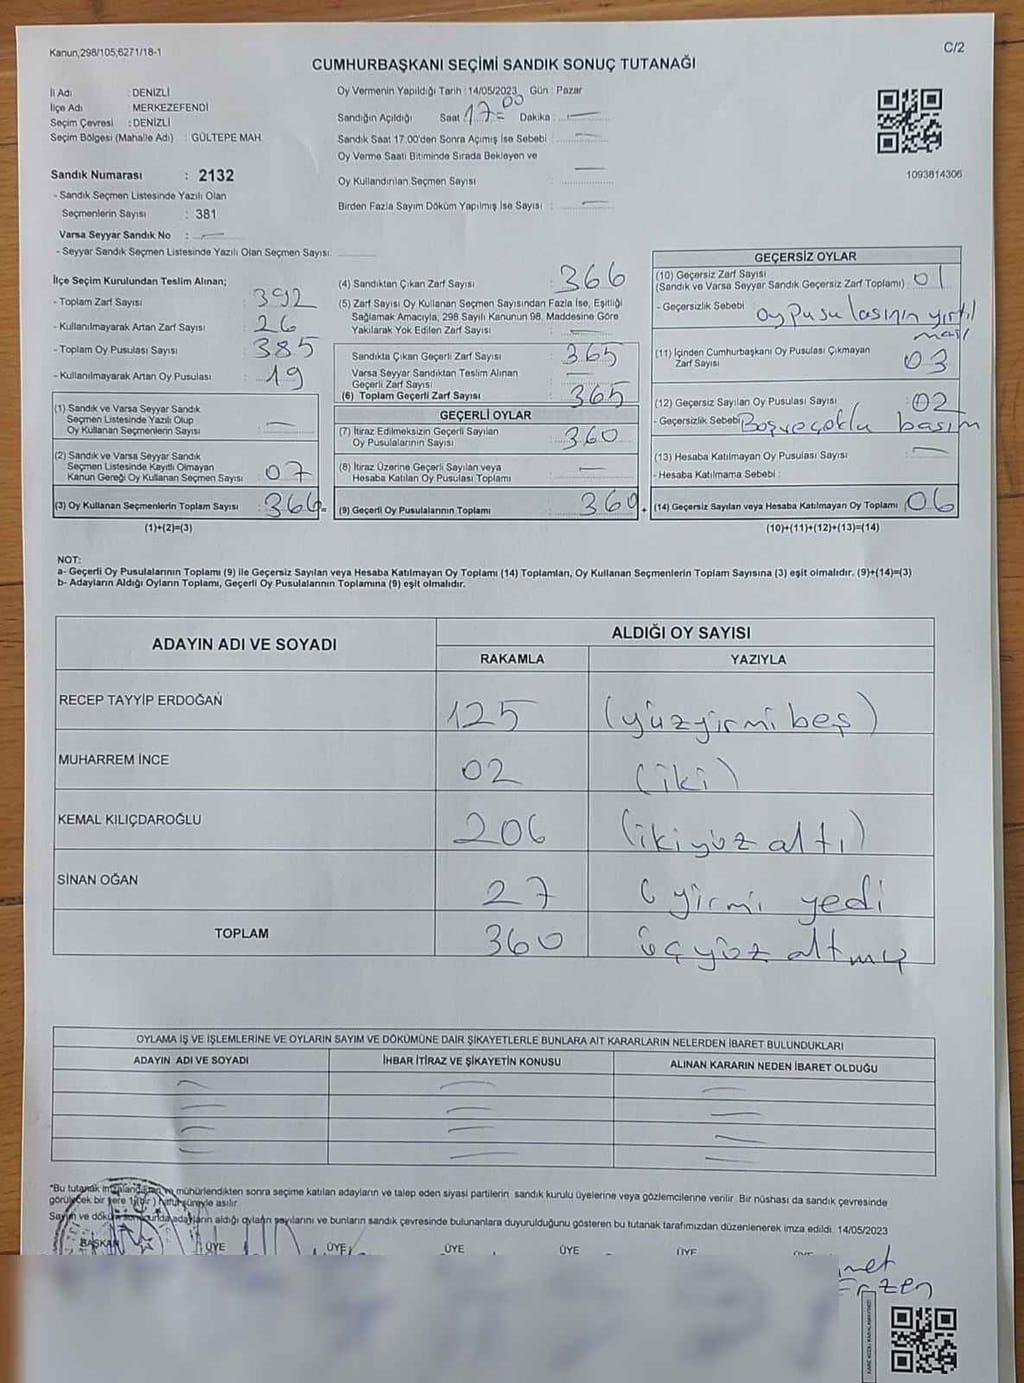 Kanun,298/105,6271/18-1
C/2
CUMHURBAŞKANI SEÇİMİ SANDIK SONUÇ TUTANAĞI
İl Adı : DENİZLİ
İlçe Adı : MERKEZEFENDİ
Seçim Çevresi : DENİZLİ
Seçim Bölgesi (Mahalle Adı) : GÜLTEPE MAH.
Sandık Numarası : 2132
- Sandık Seçmen Listesinde Yazılı Olan
Seçmenlerin Sayısı : 381
Varsa Seyyar Sandık No : —
- Seyyar Sandık Seçmen Listesinde Yazılı Olan Seçmen Sayısı:
Oy Vermenin Yapıldığı Tarih : 14/05/2023 Gün : Pazar
Sandığın Açıldığı Saat 17=00 Dakika : —
Sandık Saat 17.00'den Sonra Açımış İse Sebebi : —
Oy Verme Saati Bitiminde Sırada Bekleyen ve
Oy Kullandırılan Seçmen Sayısı : —
Birden Fazla Sayım Döküm Yapılmış İse Sayısı : —
1093814306
İlçe Seçim Kurulundan Teslim Alınan;
- Toplam Zarf Sayısı : 392
- Kullanılmayarak Artan Zarf Sayısı : 26
- Toplam Oy Pusulası Sayısı : 385
- Kullanılmayarak Artan Oy Pusulası : 19
(1) Sandık ve Varsa Seyyar Sandık
Seçmen Listesinde Yazılı Olup
Oy Kullanan Seçmenlerin Sayısı : —
(2) Sandık ve Varsa Seyyar Sandık
Seçmen Listesinde Kayıtlı Olmayan
Kanun Gereği Oy Kullanan Seçmen Sayısı : 07
(3) Oy Kullanan Seçmenlerin Toplam Sayısı : 366 =
(1)+(2)=(3)
(4) Sandıktan Çıkan Zarf Sayısı : 366
(5) Zarf Sayısı Oy Kullanan Seçmen Sayısından Fazla İse, Eşitliği
Sağlamak Amacıyla, 298 Sayılı Kanunun 98. Maddesine Göre
Yakılarak Yok Edilen Zarf Sayısı : —
Sandıkta Çıkan Geçerli Zarf Sayısı : 365
Varsa Seyyar Sandıktan Teslim Alınan
Geçerli Zarf Sayısı : —
(6) Toplam Geçerli Zarf Sayısı : 365
GEÇERLİ OYLAR
(7) İtiraz Edilmeksizin Geçerli Sayılan
Oy Pusulalarının Sayısı : 360
(8) İtiraz Üzerine Geçerli Sayılan veya
Hesaba Katılan Oy Pusulası Toplamı : —
(9) Geçerli Oy Pusulalarının Toplamı : 360 +
GEÇERSİZ OYLAR
(10) Geçersiz Zarf Sayısı
(Sandık ve Varsa Seyyar Sandık Geçersiz Zarf Toplamı) : 01
- Geçersizlik Sebebi : oy pusulasının yırtıl
ması
(11) İçinden Cumhurbaşkanı Oy Pusulası Çıkmayan
Zarf Sayısı : 03
(12) Geçersiz Sayılan Oy Pusulası Sayısı : 02
- Geçersizlik Sebebi Boş ve çoklu basım
(13) Hesaba Katılmayan Oy Pusulası Sayısı : —
- Hesaba Katılmama Sebebi :
(14) Geçersiz Sayılan veya Hesaba Katılmayan Oy Toplamı : 06
(10)+(11)+(12)+(13)=(14)
NOT:
a- Geçerli Oy Pusulalarının Toplamı (9) ile Geçersiz Sayılan veya Hesaba Katılmayan Oy Toplamı (14) Toplamları, Oy Kullanan Seçmenlerin Toplam Sayısına (3) eşit olmalıdır. (9)+(14)=(3)
b- Adayların Aldığı Oyların Toplamı, Geçerli Oy Pusulalarının Toplamına (9) eşit olmalıdır.
ADAYIN ADI VE SOYADI ALDIĞI OY SAYISI
RAKAMLA YAZIYLA
RECEP TAYYİP ERDOĞAN 125 (yüzyirmi beş)
MUHARREM İNCE 02 (iki)
KEMAL KILIÇDAROĞLU 206 (ikiyüz altı)
SİNAN OĞAN 27 ( yirmi yedi
TOPLAM 360 üçyüz altmış
OYLAMA İŞ VE İŞLEMLERİNE VE OYLARIN SAYIM VE DÖKÜMÜNE DAİR ŞİKAYETLERLE BUNLARA AİT KARARLARIN NELERDEN İBARET BULUNDUKLARI
ADAYIN ADI VE SOYADI İHBAR İTİRAZ VE ŞİKAYETİN KONUSU ALINAN KARARIN NEDEN İBARET OLDUĞU
*Bu tutanak mühürlendikten sonra seçime katılan adayların ve talep eden siyasi partilerin sandık kurulu üyelerine veya gözlemcilerine verilir. Bir nüshası da sandık çevresinde
görülecek bir yere süreyle asılır.
Sayım ve döküm sonucunda adayların aldığı oyların sayılarını ve bunların sandık çevresinde bulunanlara duyurulduğunu gösteren bu tutanak tarafımızdan düzenlenerek imza edildi. 14/05/2023
BAŞKAN ÜYE ÜYE ÜYE ÜYE ÜYE ÜYE